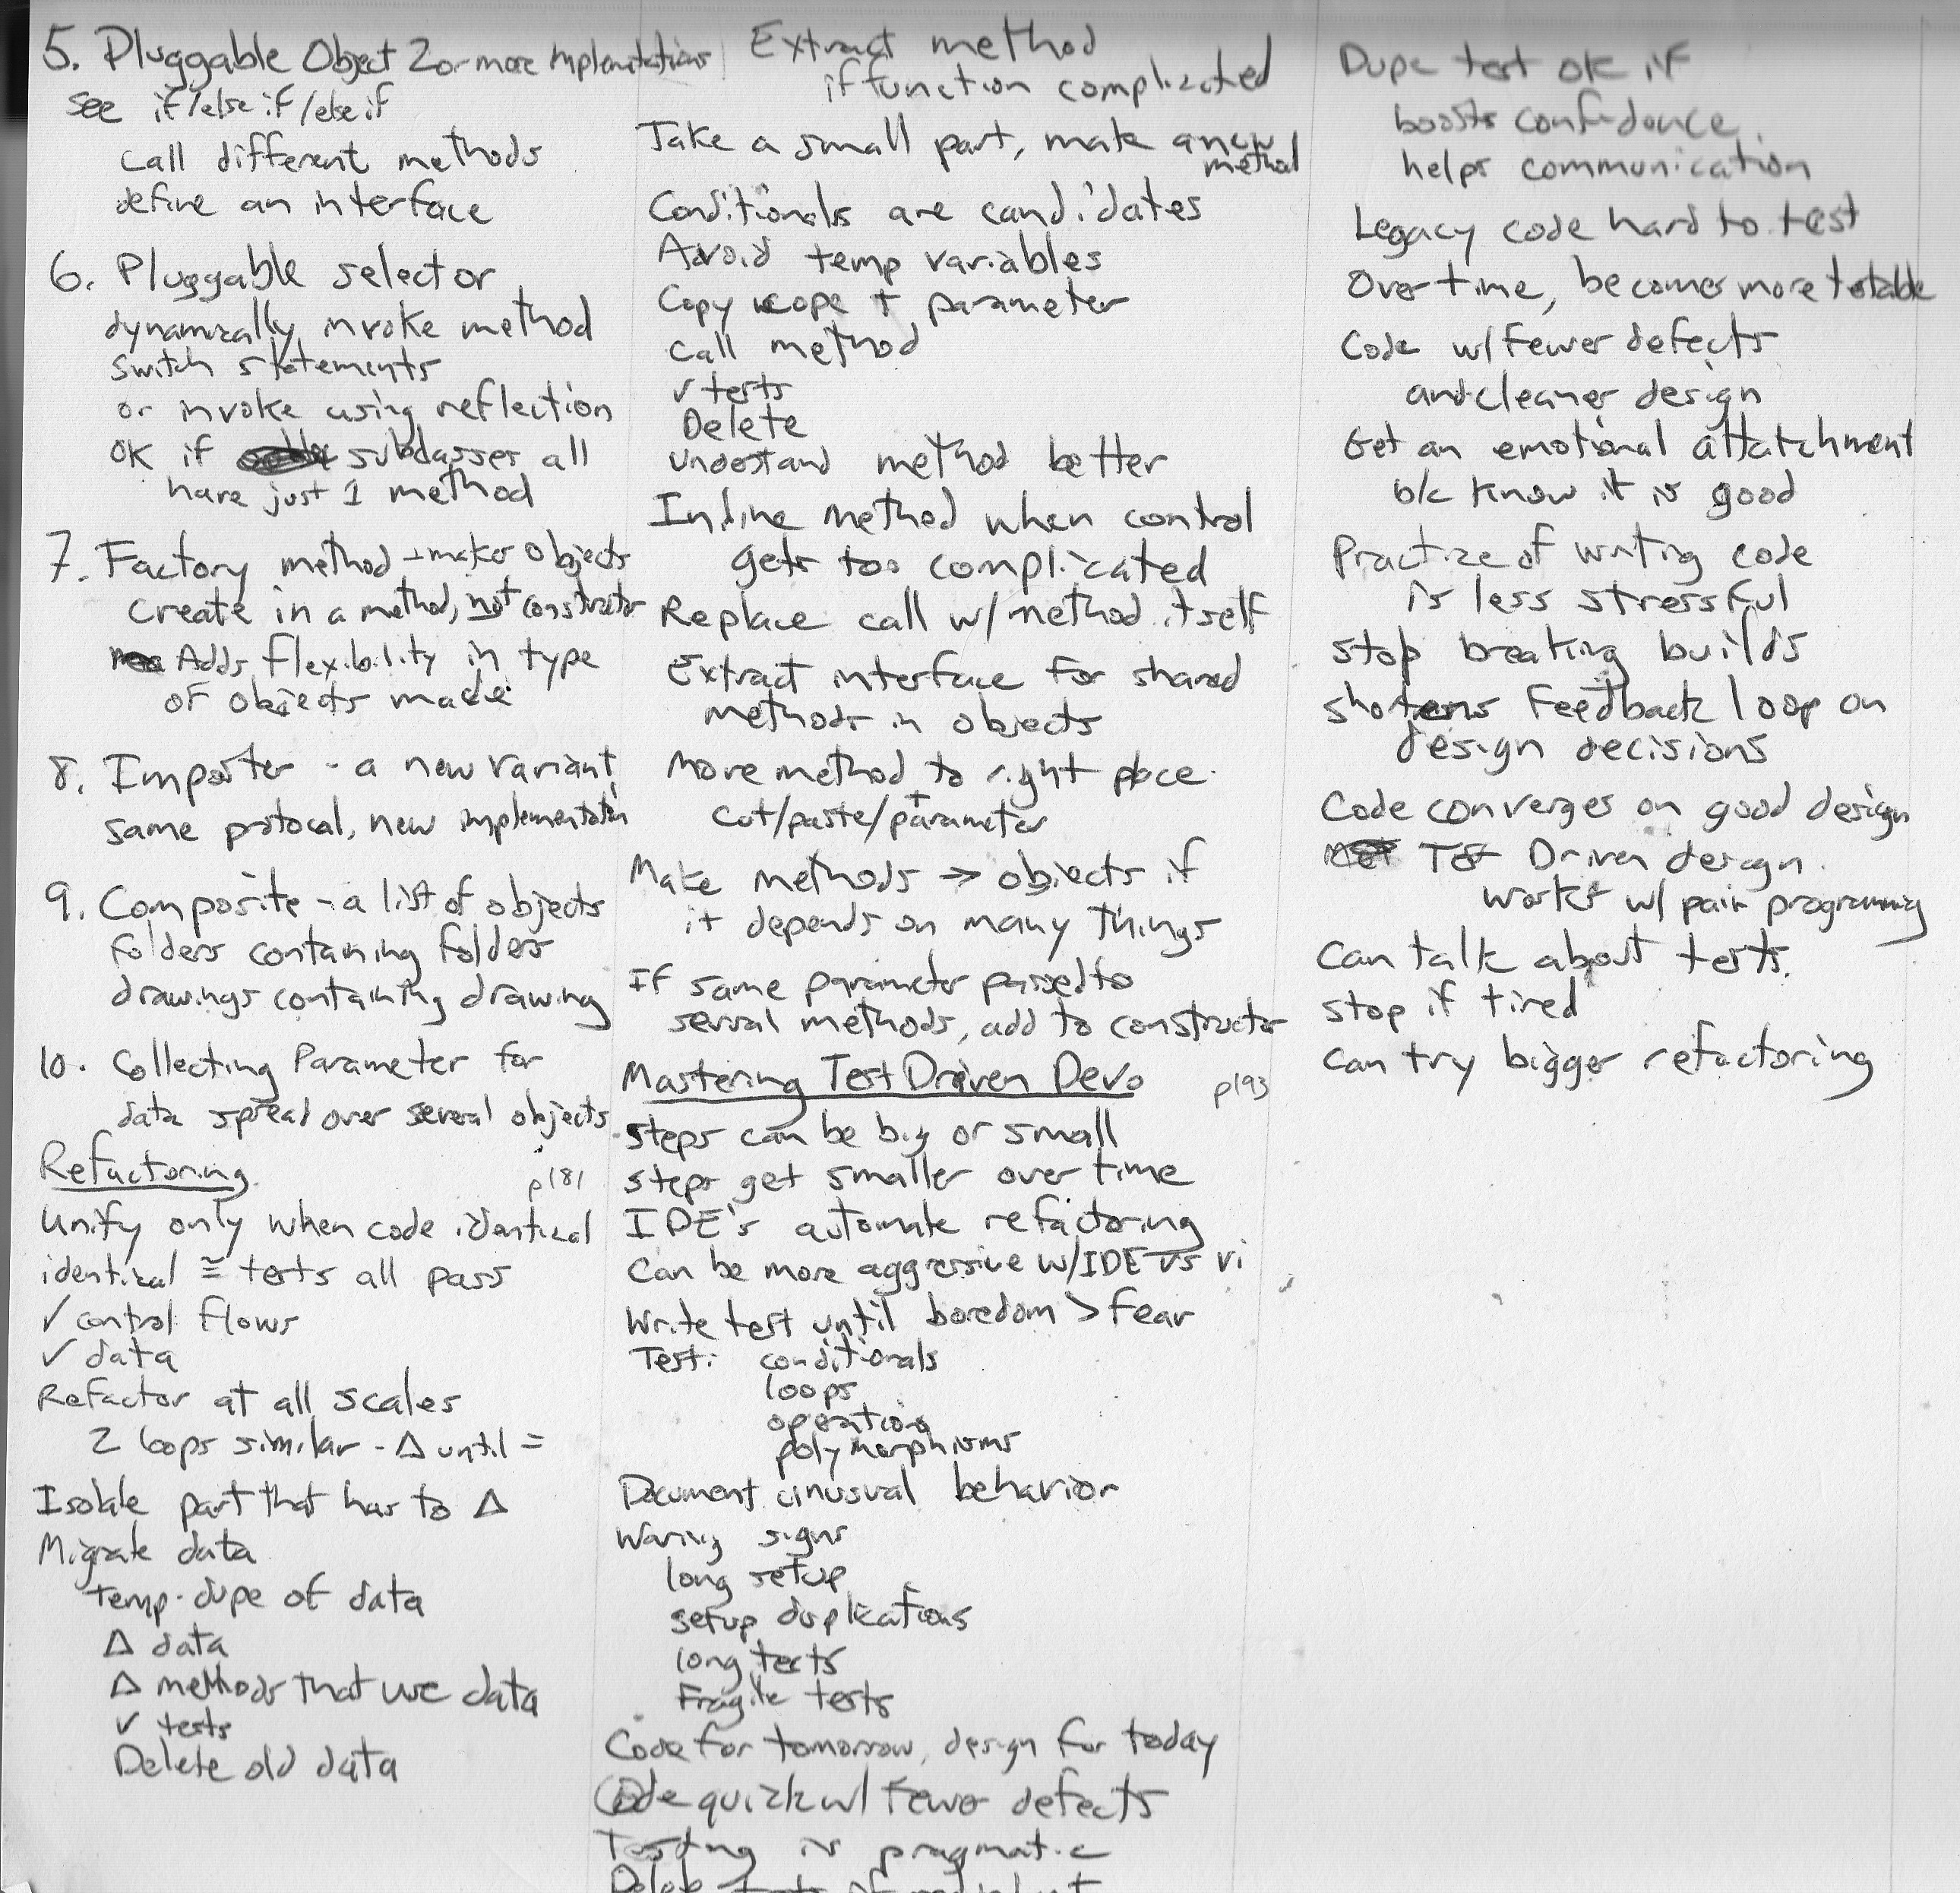 5. Pluggable Object 2 or more implementations
see if/else if/else if
call different methods
define an interface
6. Pluggable selector
dynamically invoke method
switch statements
or invoke using reflection
OK if subclasses all
have just 1 method
7. Factory method - makes objects
create in a method, not constructor
Adds flexibility in type
of objects made
8. Imposter - a new variant
same protocal, new implementation
9. Composite - a list of objects
folders containing folders
drawings containing drawing
10. Collecting Parameter for
data spread over several objects
Refactoring p181
Unify only when code identical
identical ≅ tests all pass
✓ control flows
✓ data
Refactor at all scales
2 loops similar - Δ until =
Isolate part that has to Δ
Migrate data
temp. dupe of data
Δ data
Δ methods that use data
✓ tests
Delete old data
Extract method
if function complicated
Take a small part, make a new
method
Conditionals are candidates
Avoid temp variables
Copy scope + parameter
call method
✓ tests
Delete
Understand method better
Inline method when control
gets too complicated
Replace call w/ method itself
Extract interface for shared
methods in objects
Move method to right place
cut/paste/+parameter
Make methods → objects if
it depends on many things
If same parameter passed to
serval methods, add to constructor
Mastering Test Driven Dev. p193
steps can be big or small
steps get smaller over time
IDE's automate refactoring
Can be more aggressive w/IDE vs vi
Write test until boredom > fear
Test: conditionals
loops
operations
polymorphisms
Document unusual behavior
Waring signs
long setup
setup duplications
long tests
Fragile tests
Code for tomorrow, design for today
Code quick w/ fewer defects
Testing is pragmatic
Delete tests if
Dupe test ok if
boosts confidence
helps communication
Legacy code hard to test
Over time, becomes more testable
Code w/ fewer defects
and cleaner design
Get an emotional attatchment
b/c know it is good
Practize of writing code
is less stressful
stop breaking builds
shortens feedback loop on
design decisions
Code converges on good design
Test Driven design
works w/ pair programming
Can talk about tests.
stop if tired
can try bigger refactoring